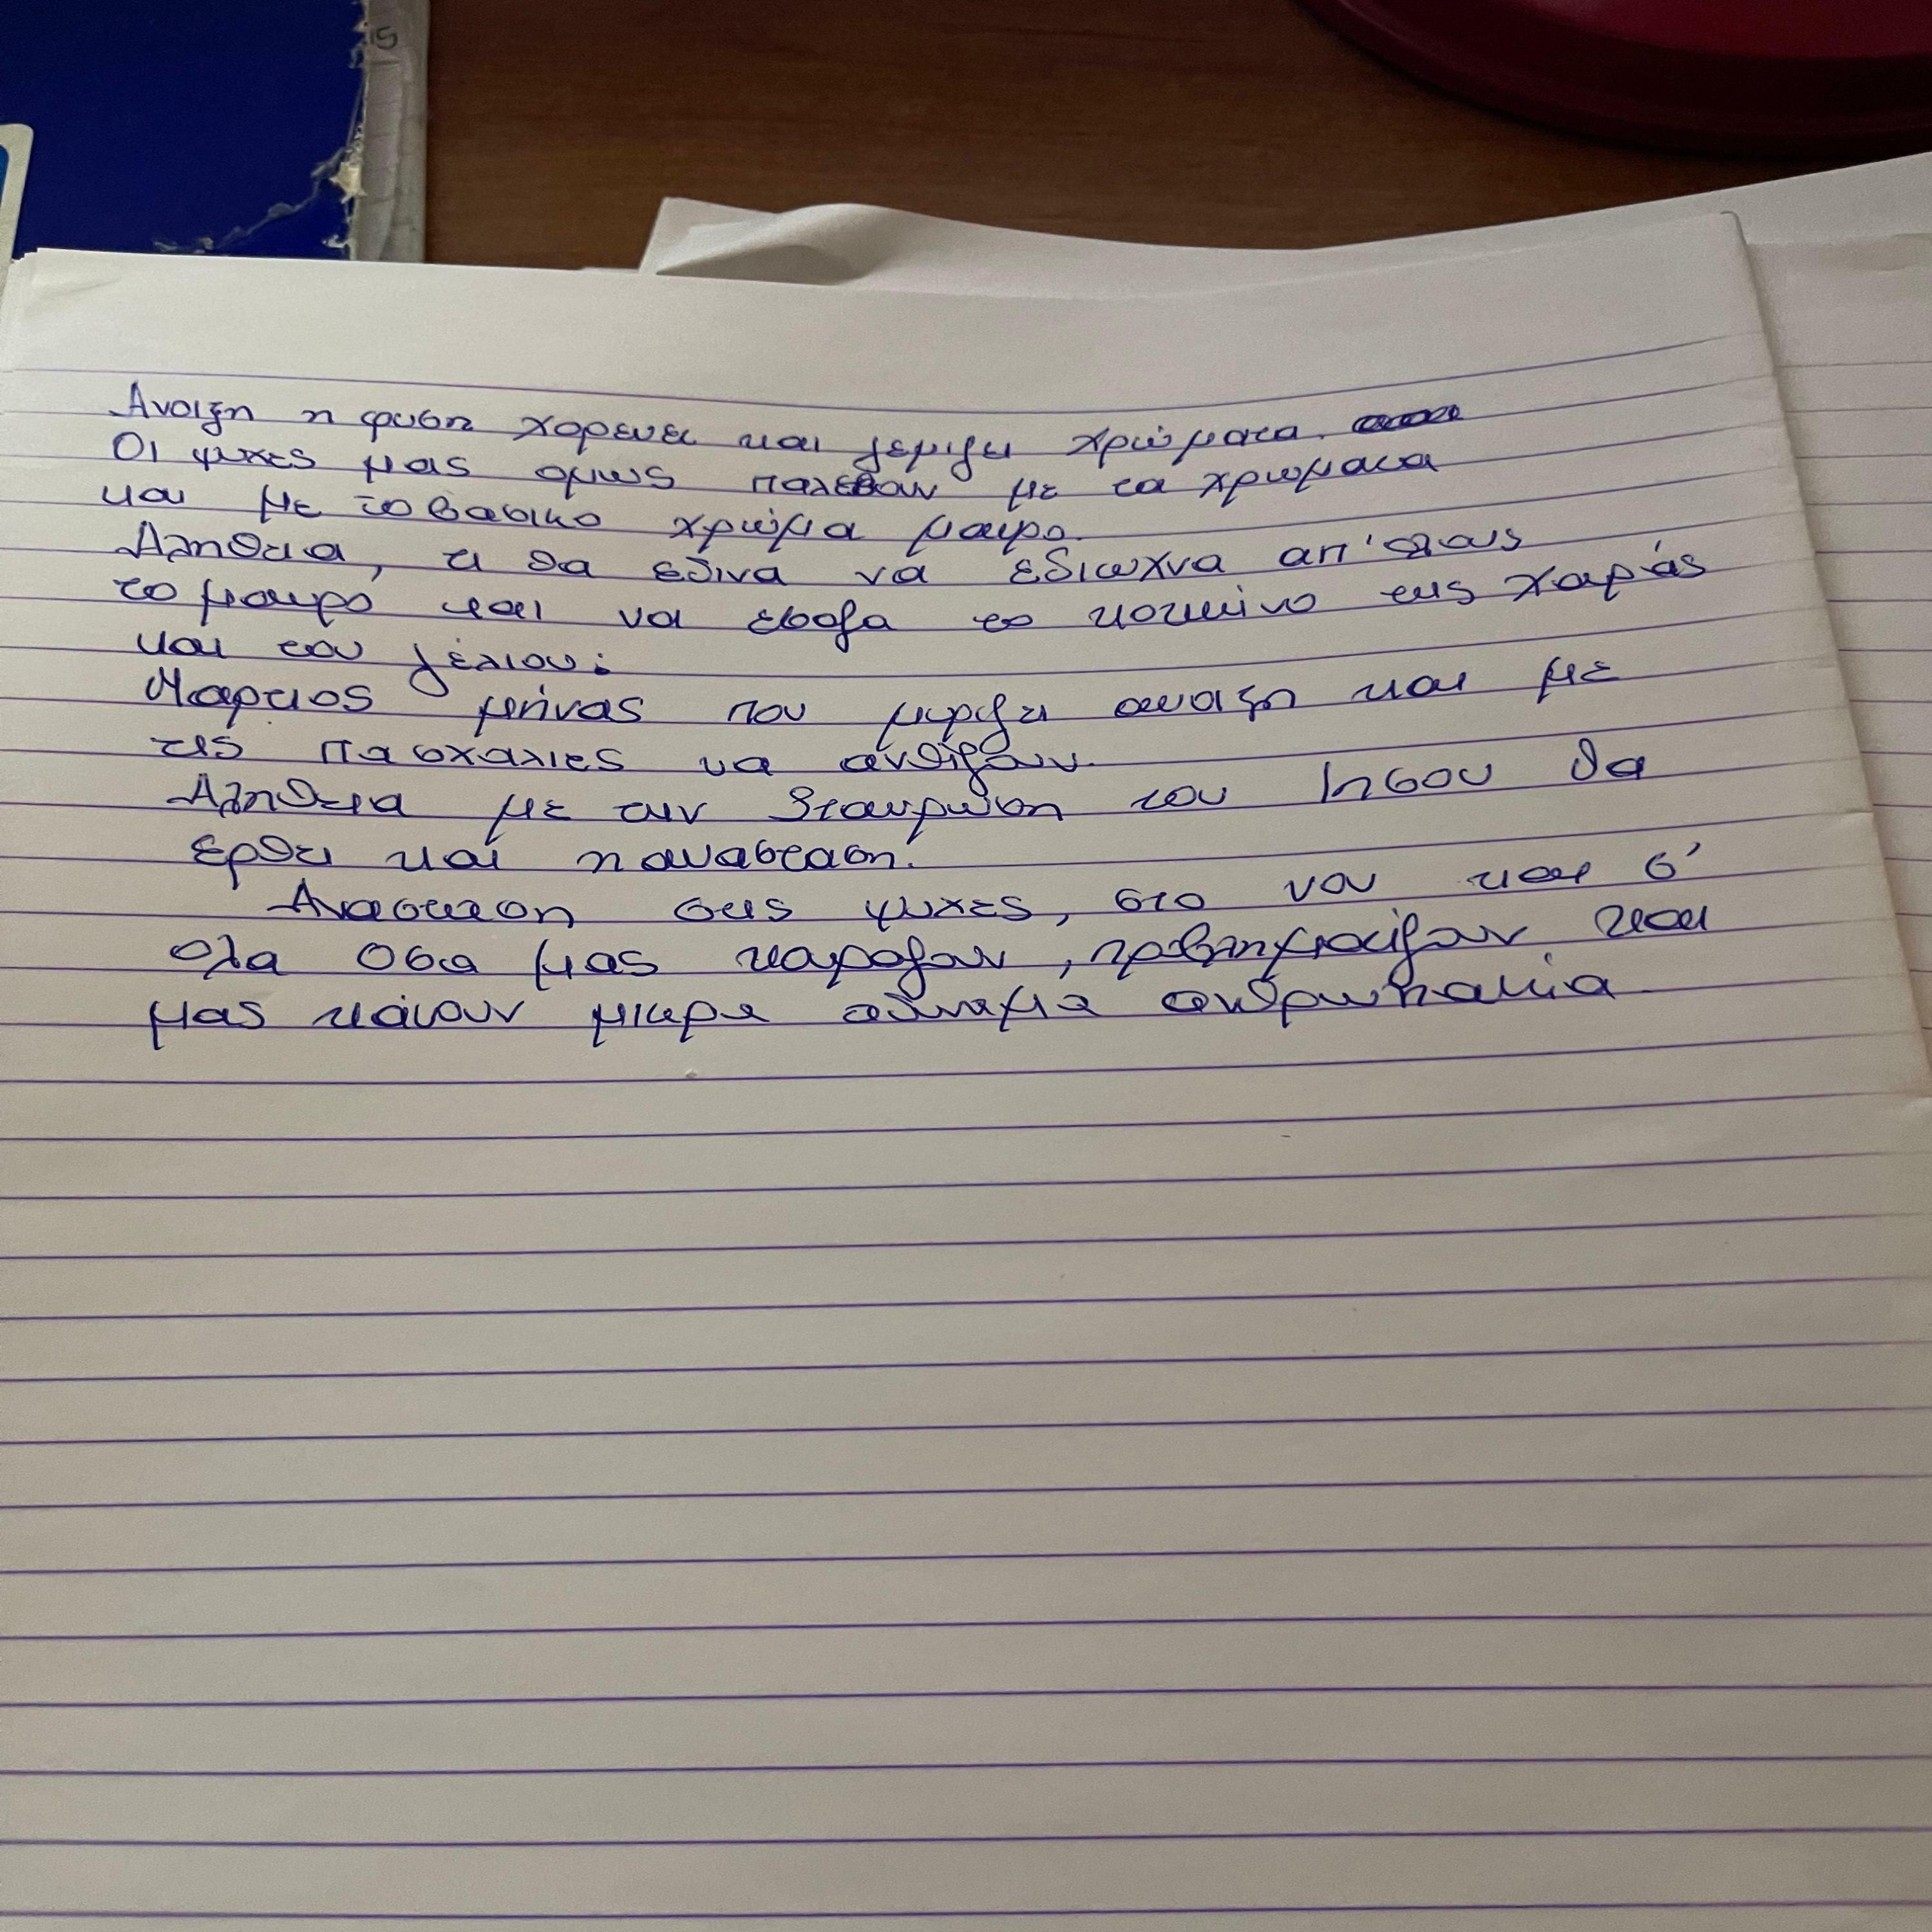 15
Ανοιξη η φυση χορευει και γεμιζει χρώματα.
Οι ψυχες μας ομως παλεβουν με τα χρωματα
και με το βασικο χρώμα μαυρο.
Αληθεια, τι θα εδινα να εδιωχνα απ' ολους
το μαυρο και να εβαζα το κοκκινο της χαράς
και του γέλιου;
Μαρτιος μήνας που μυριζει ανοιξη και με
τις πασχαλιες να ανθίζουν.
Αληθεια με την Σταυρωση του Ιησου θα
ερθει και η ανασταση.
Ανασταση στις ψυχες, στο νου και σ'
ολα οσα μας , προβλημαtίζουν και
μας κάνουν μικρα αδυναμα ανθρωπακια